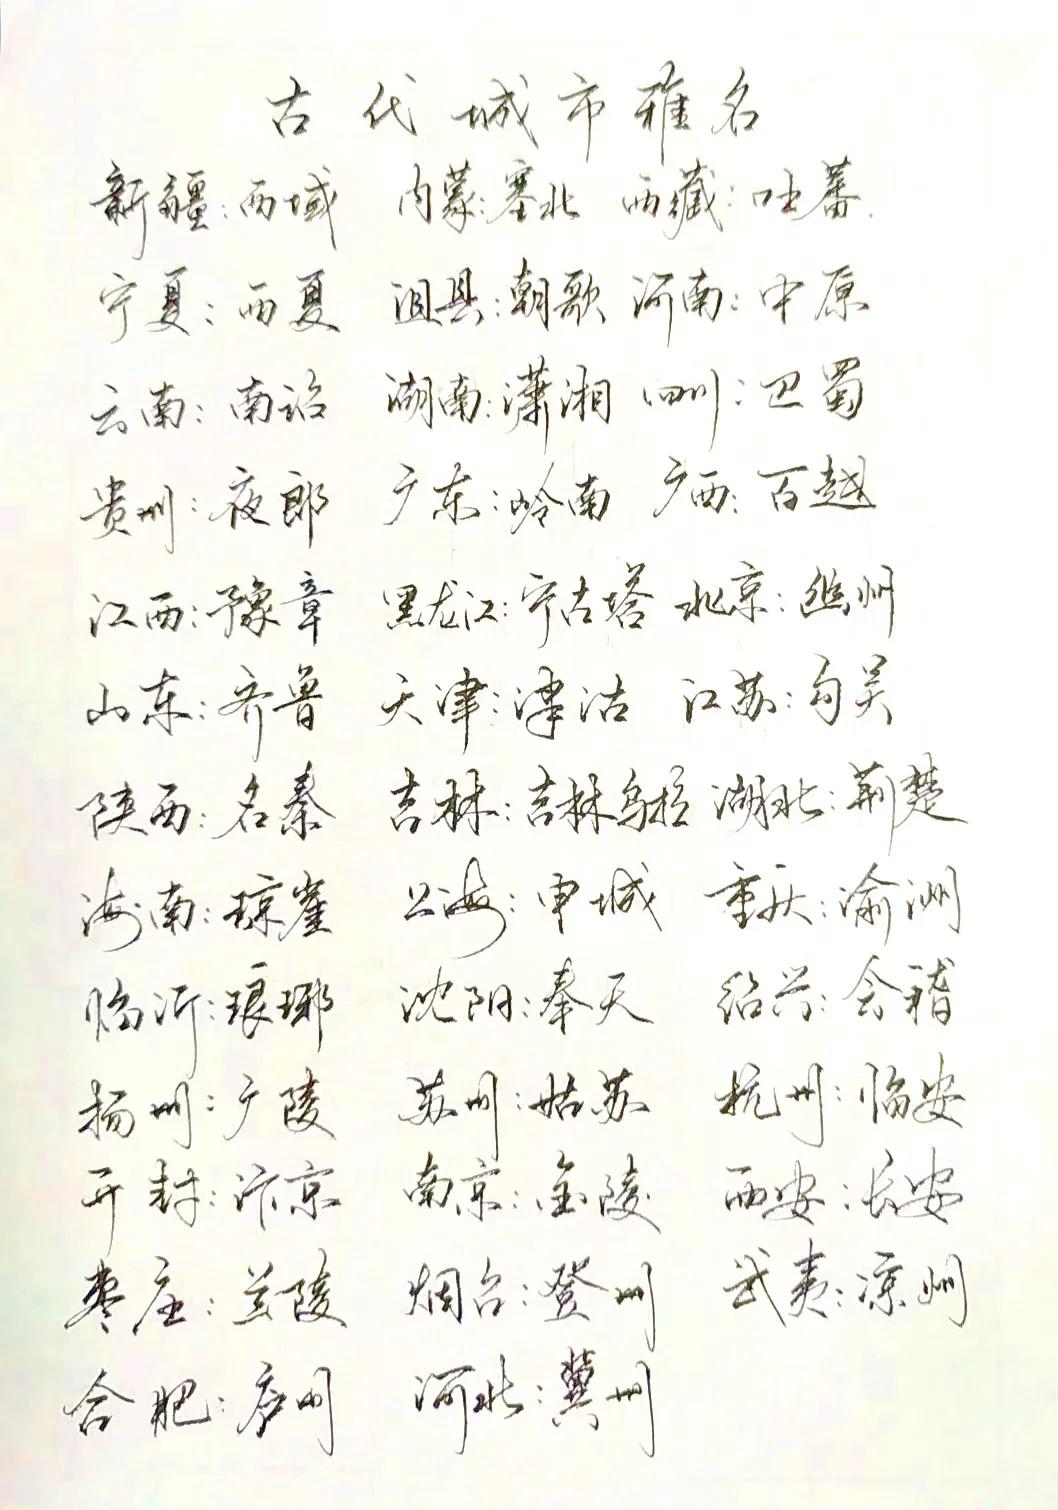 古代城市雅名
新疆:西域 内蒙:塞北 西藏:吐蕃
宁夏:西夏 沮县:朝歌 河南:中原
云南:南诏 湖南:潇湘 四川:巴蜀
贵州:夜郎 广东:岭南 广西:百越
江西:豫章 黑龙江:宁古塔 北京:幽州
山东:齐鲁 天津:津沽 江苏:勾吴
陕西:名秦 吉林:吉林乌拉 湖北:荆楚
海南:琼崖 上海:申城 重庆:渝洲
临沂:琅琊 沈阳:奉天 绍兴:会稽
扬州:广陵 苏州:姑苏 杭州:临安
开封:汴京 南京:金陵 西安:长安
枣庄:兰陵 烟台:登州 武夷:凉州
合肥:庐州 河北:冀州